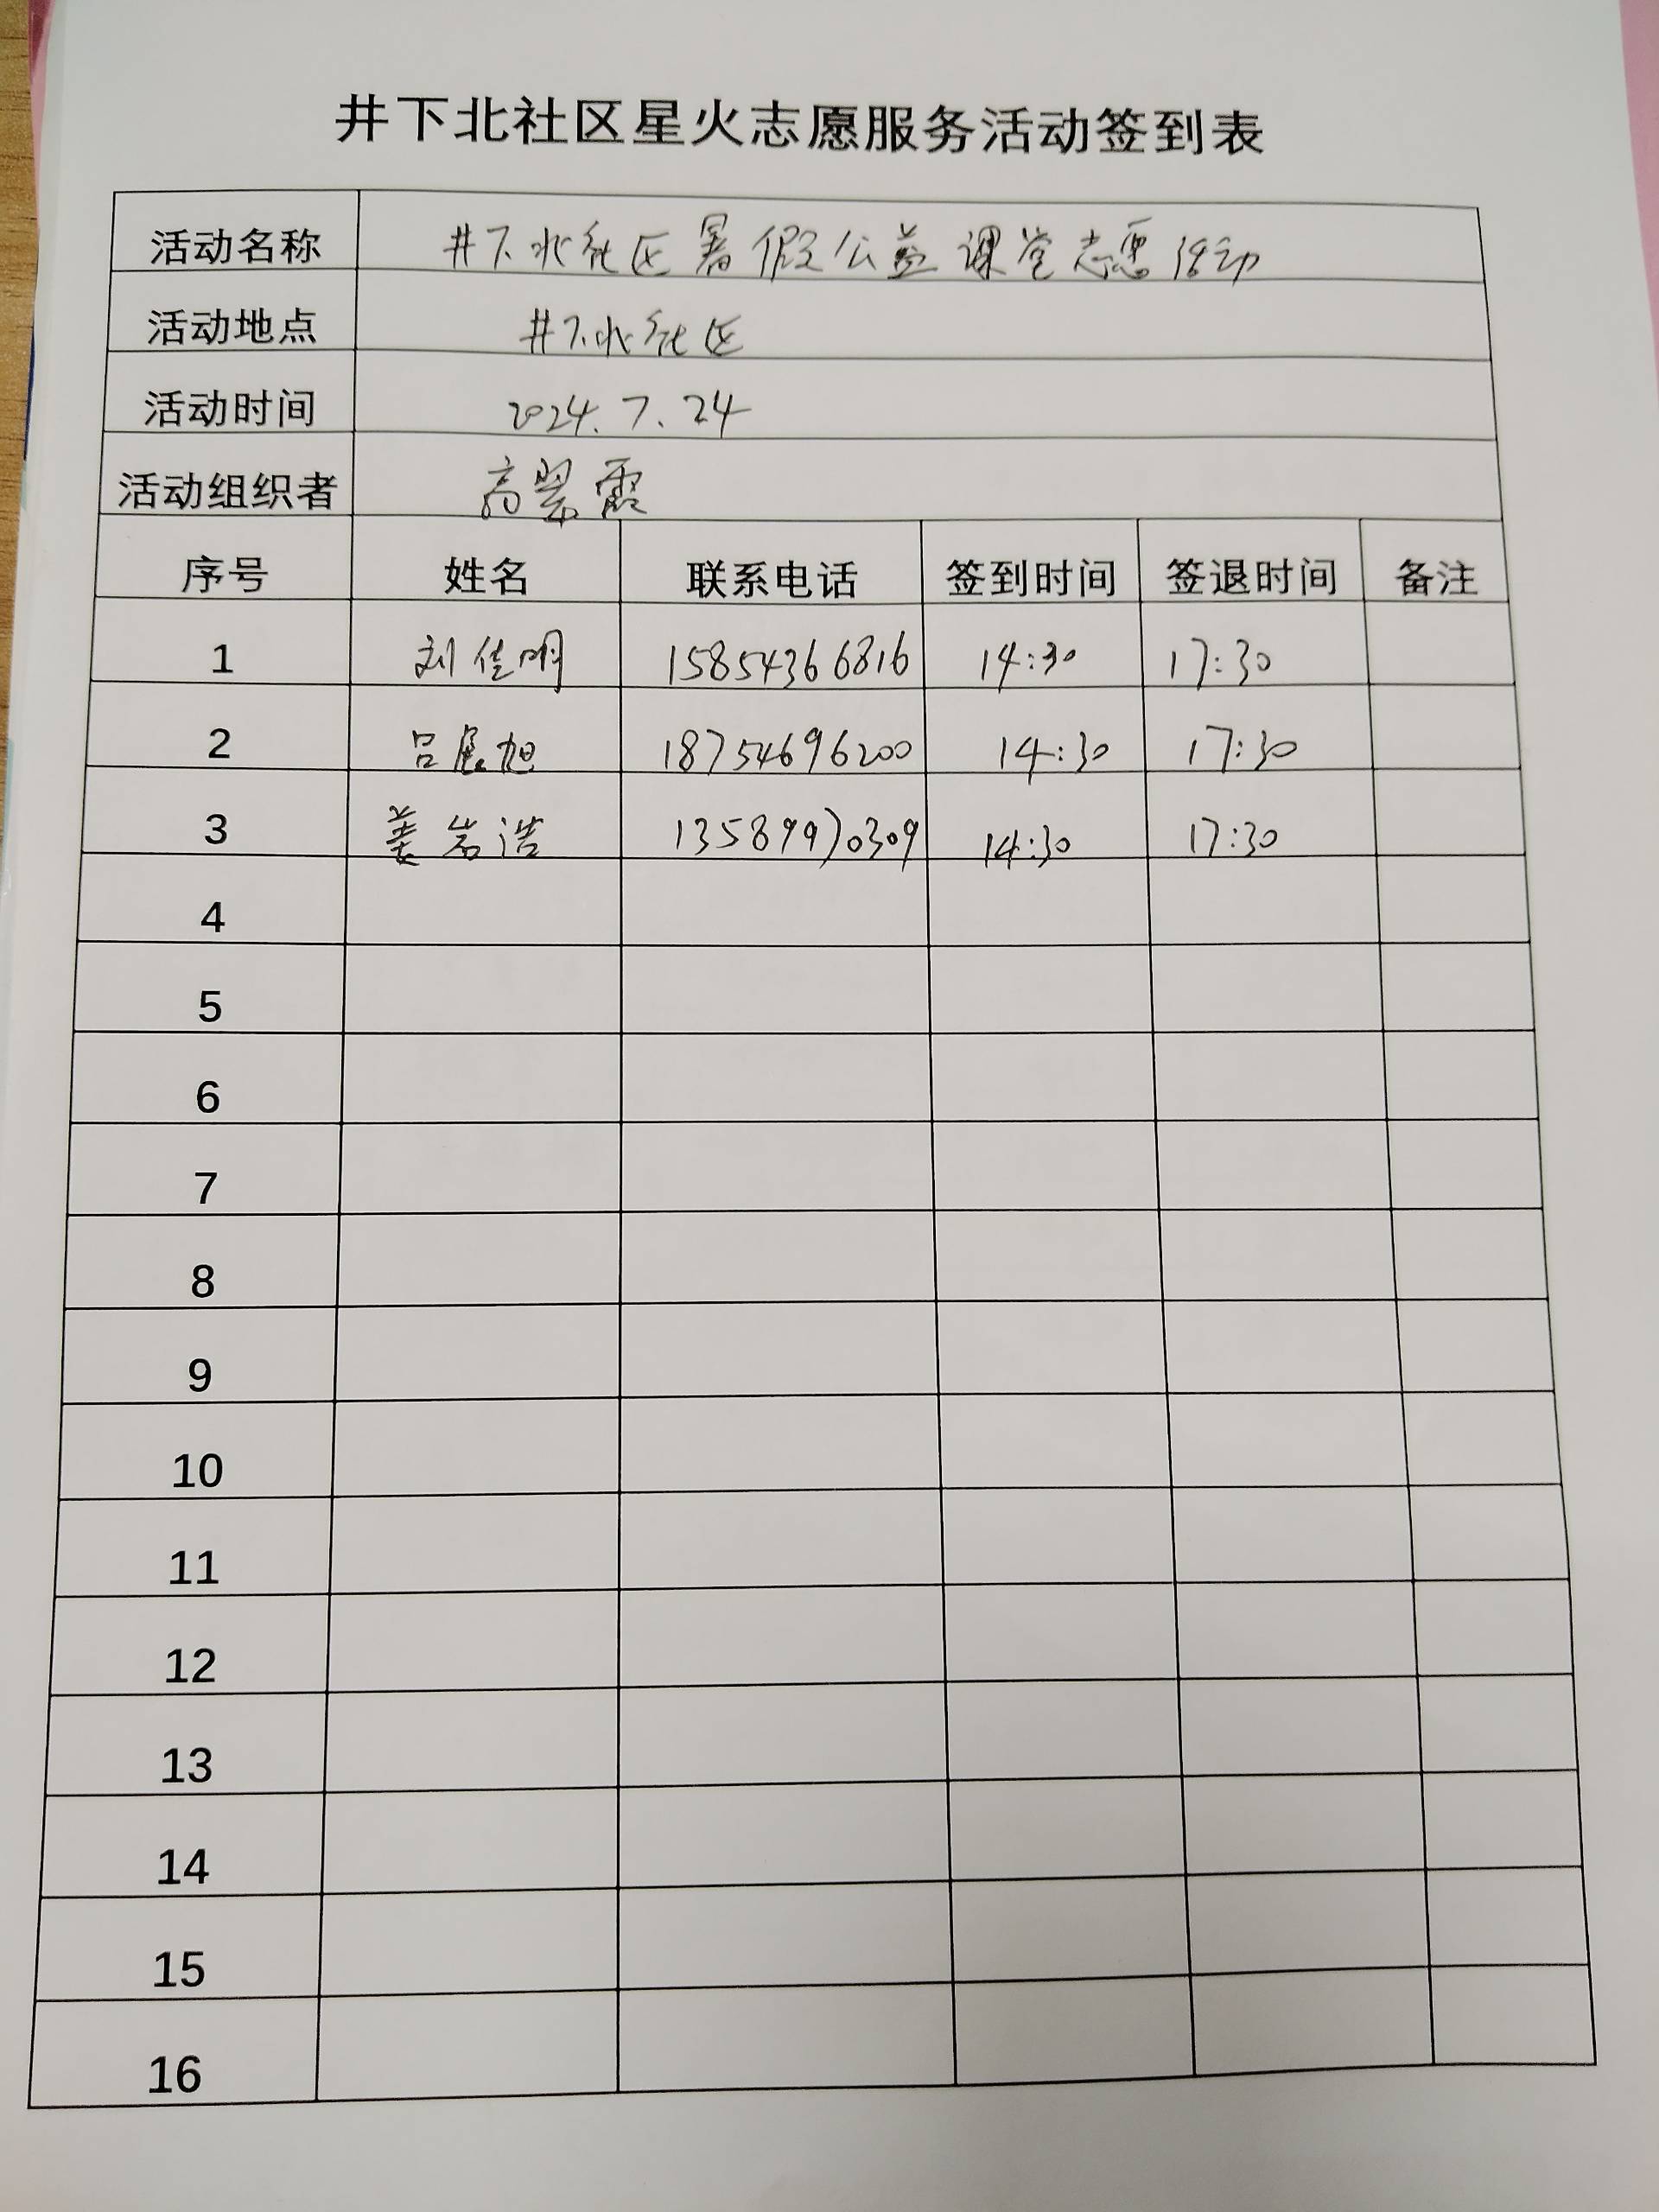 井下北社区星火志愿服务活动签到表
活动名称 井下北社区暑假公益课堂志愿活动
活动地点 井下北社区
活动时间 2024.7.24
活动组织者 高翠霞
序号 姓名 联系电话 签到时间 签退时间 备注
1 刘佳明 15854366816 14:30 17:30
2 吕展旭 18754696200 14:30 17:30
3 姜岩浩 13589970309 14:30 17:30
4
5
6
7
8
9
10
11
12
13
14
15
16